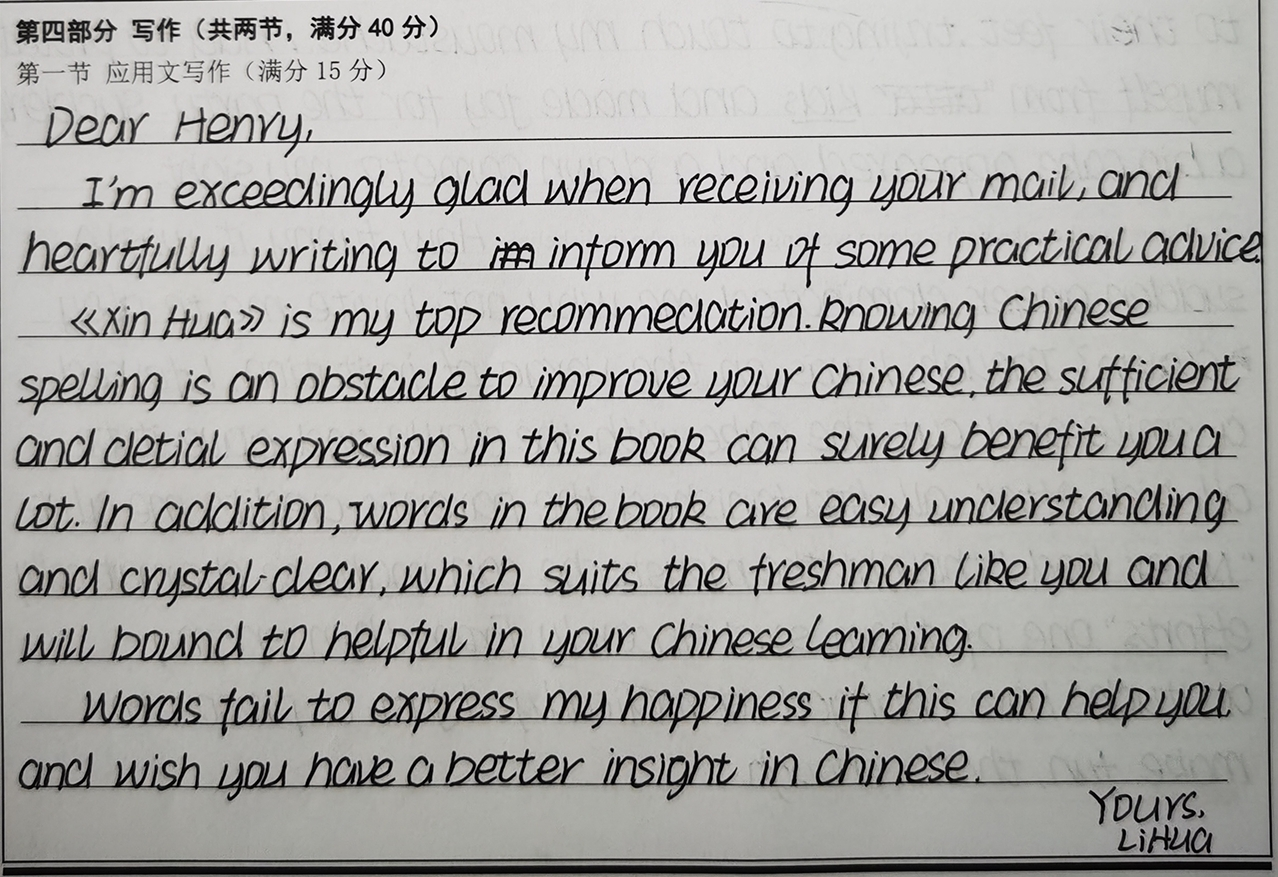 第四部分 写作（共两节，满分 40 分）
第一节 应用文写作（满分 15 分）
Dear Henry,
I'm exceedingly glad when receiving your mail, and
heartfully writing to inform you of some practical advice.
《Xin Hua》 is my top recommedation. Knowing Chinese
spelling is an obstacle to improve your Chinese, the sufficient
and detial expression in this book can surely benefit you a
lot. In addition, words in the book are easy understanding
and crystal-clear, which suits the freshman like you and
will bound to helpful in your Chinese learning.
Words fail to express my happiness if this can help you
and wish you have a better insight in Chinese.
Yours,
LiHua